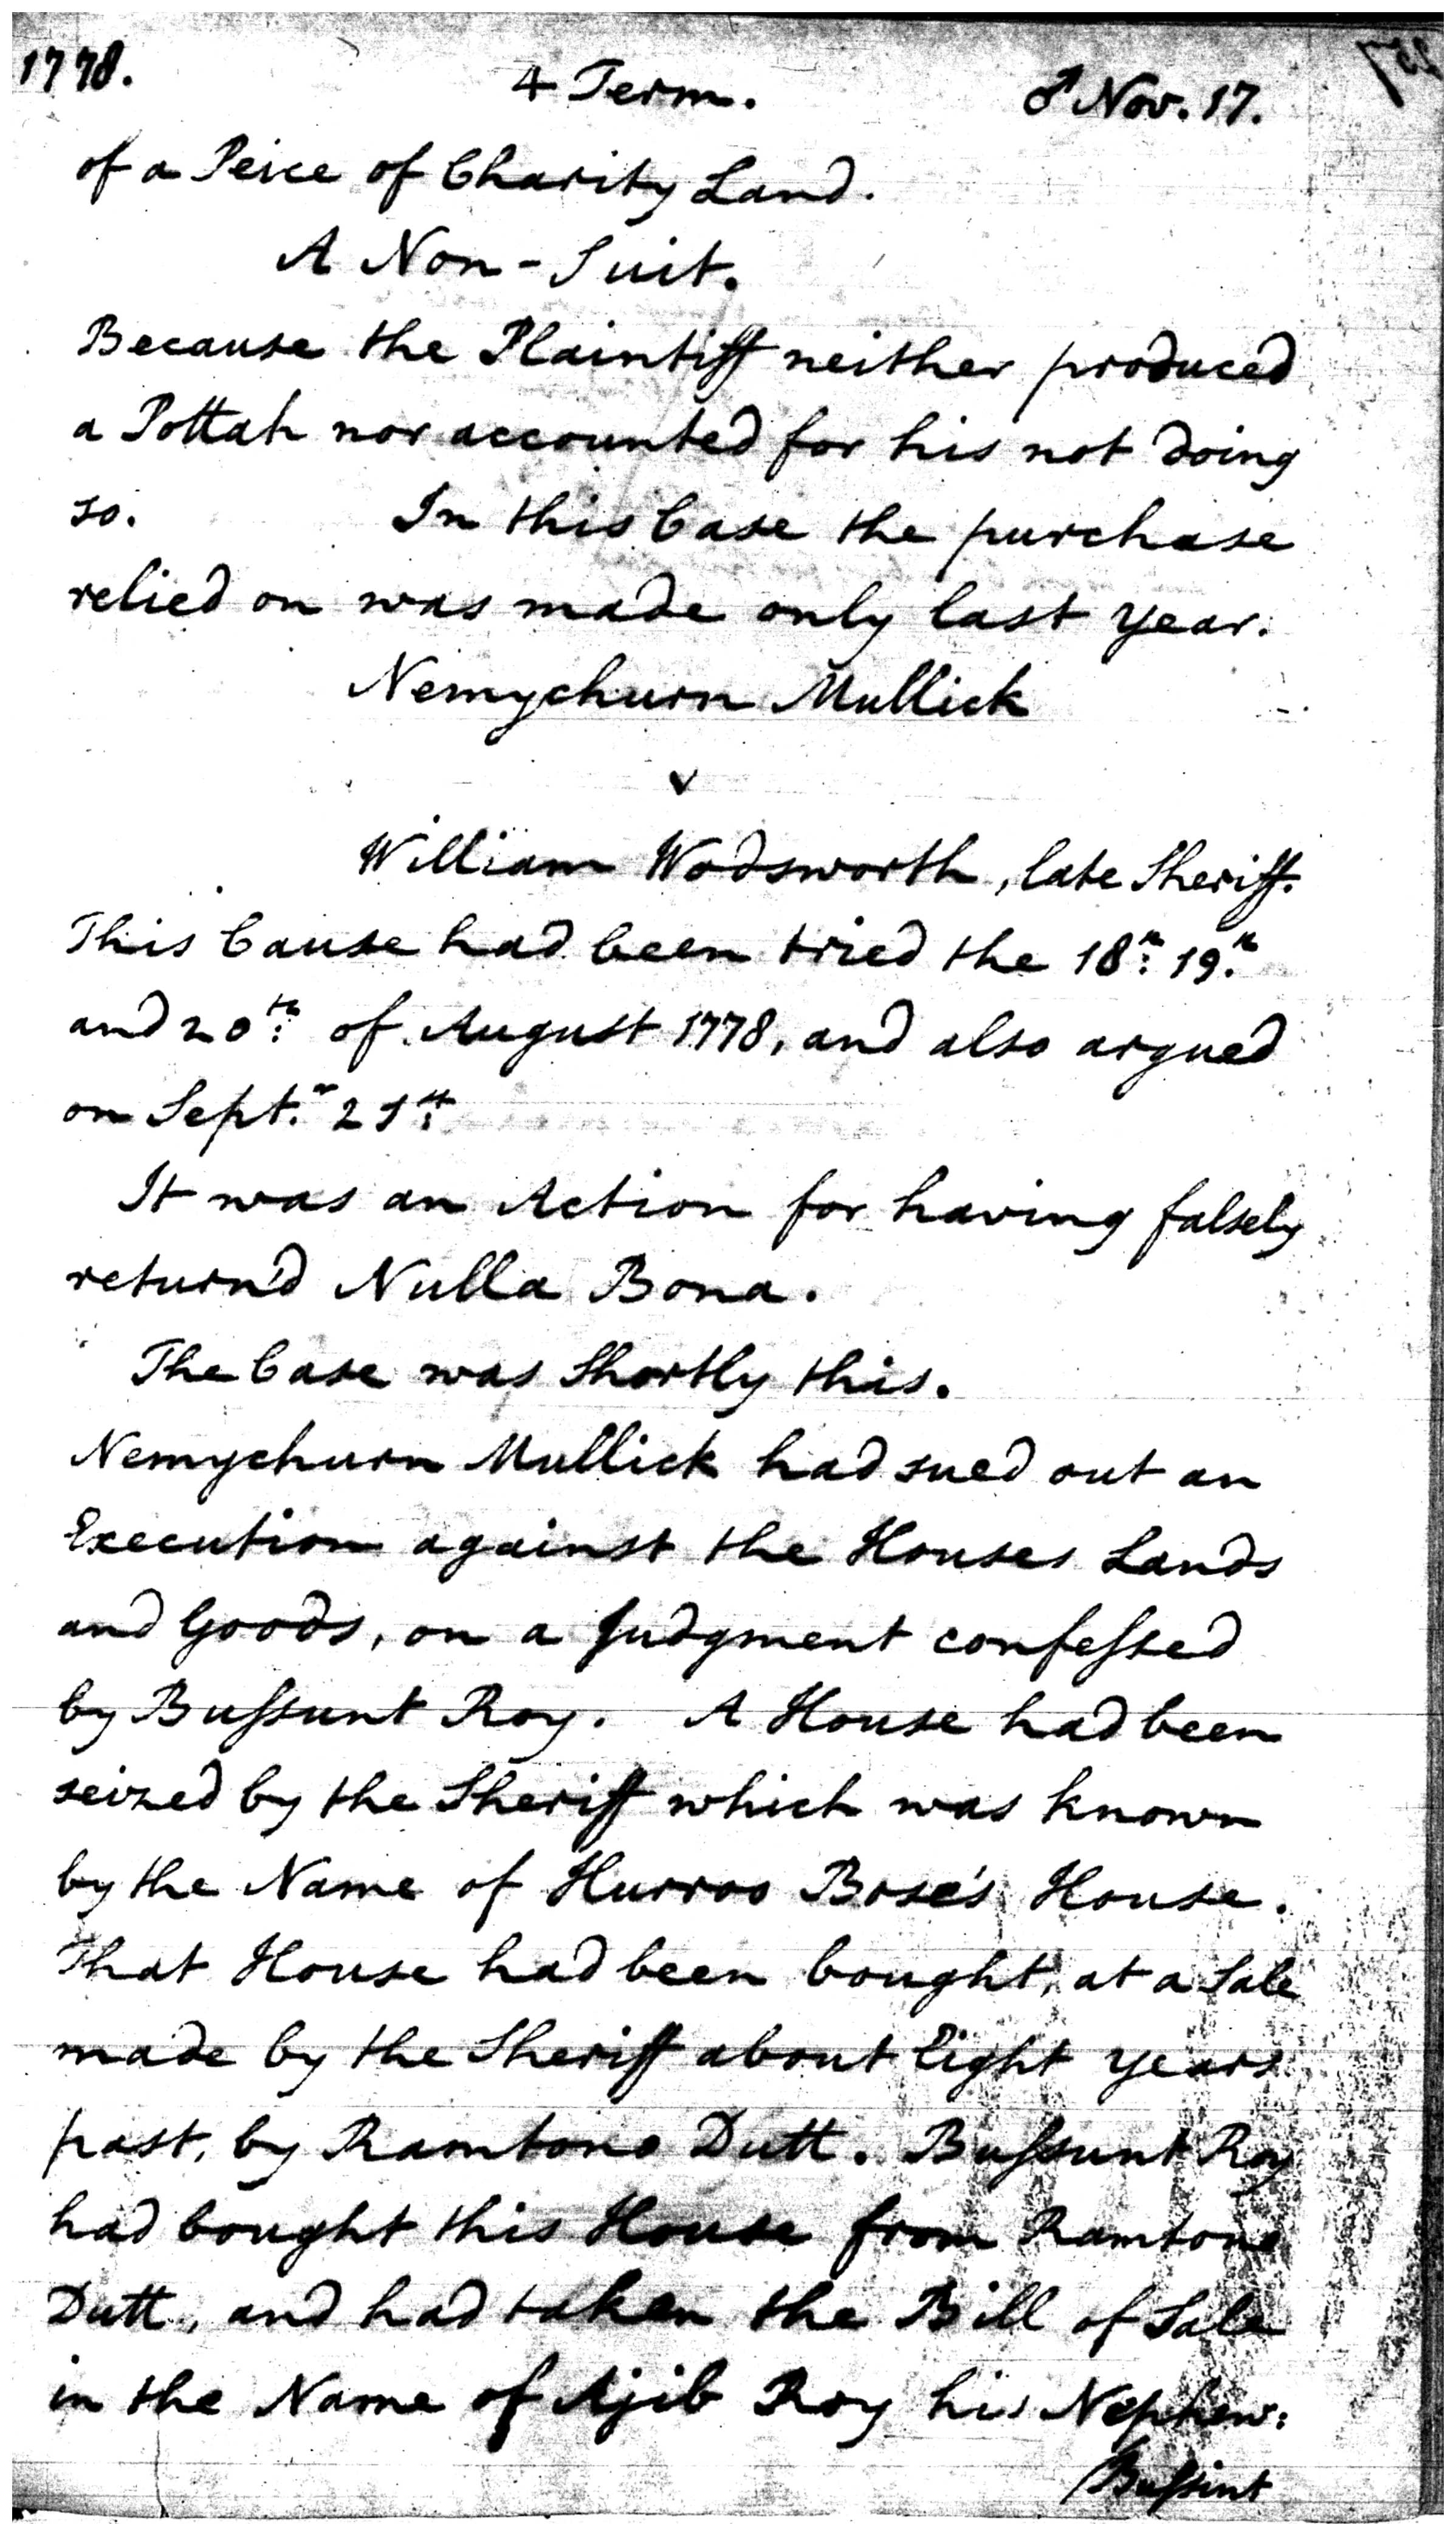 1778. 4 Term. ♂ Nov. 17.
of a Peice of Charity Land.
A Non-Suit.
Because the Plaintiff neither produced
a Pottah nor accounted for his not doing
so. In this Case the purchase
relied on was made only last year.
Nemychurn Mullick
v
William Wodsworth, late Sheriff.
This Cause had been tried the 18th 19th
and 20th of August 1778, and also argued
on Septr 21st
It was an Action for having falsely
return'd Nulla Bona.
The Case was Shortly this.
Nemychurn Mullick had sued out an
Execution against the Houses Lands
and Goods, on a Judgment confeſsed
by Buſsunt Roy. A House had been
seized by the Sheriff which was known
by the Name of Hurroo Bose's House.
That House had been bought, at a Sale
made by the Sheriff about Eight years
past, by Ramtono Dutt. Buſsunt Roy
had bought this House from Ramtono
Dutt, and had taken the Bill of Sale
in the Name of Ajib Roy his Nephew:
Buſsint